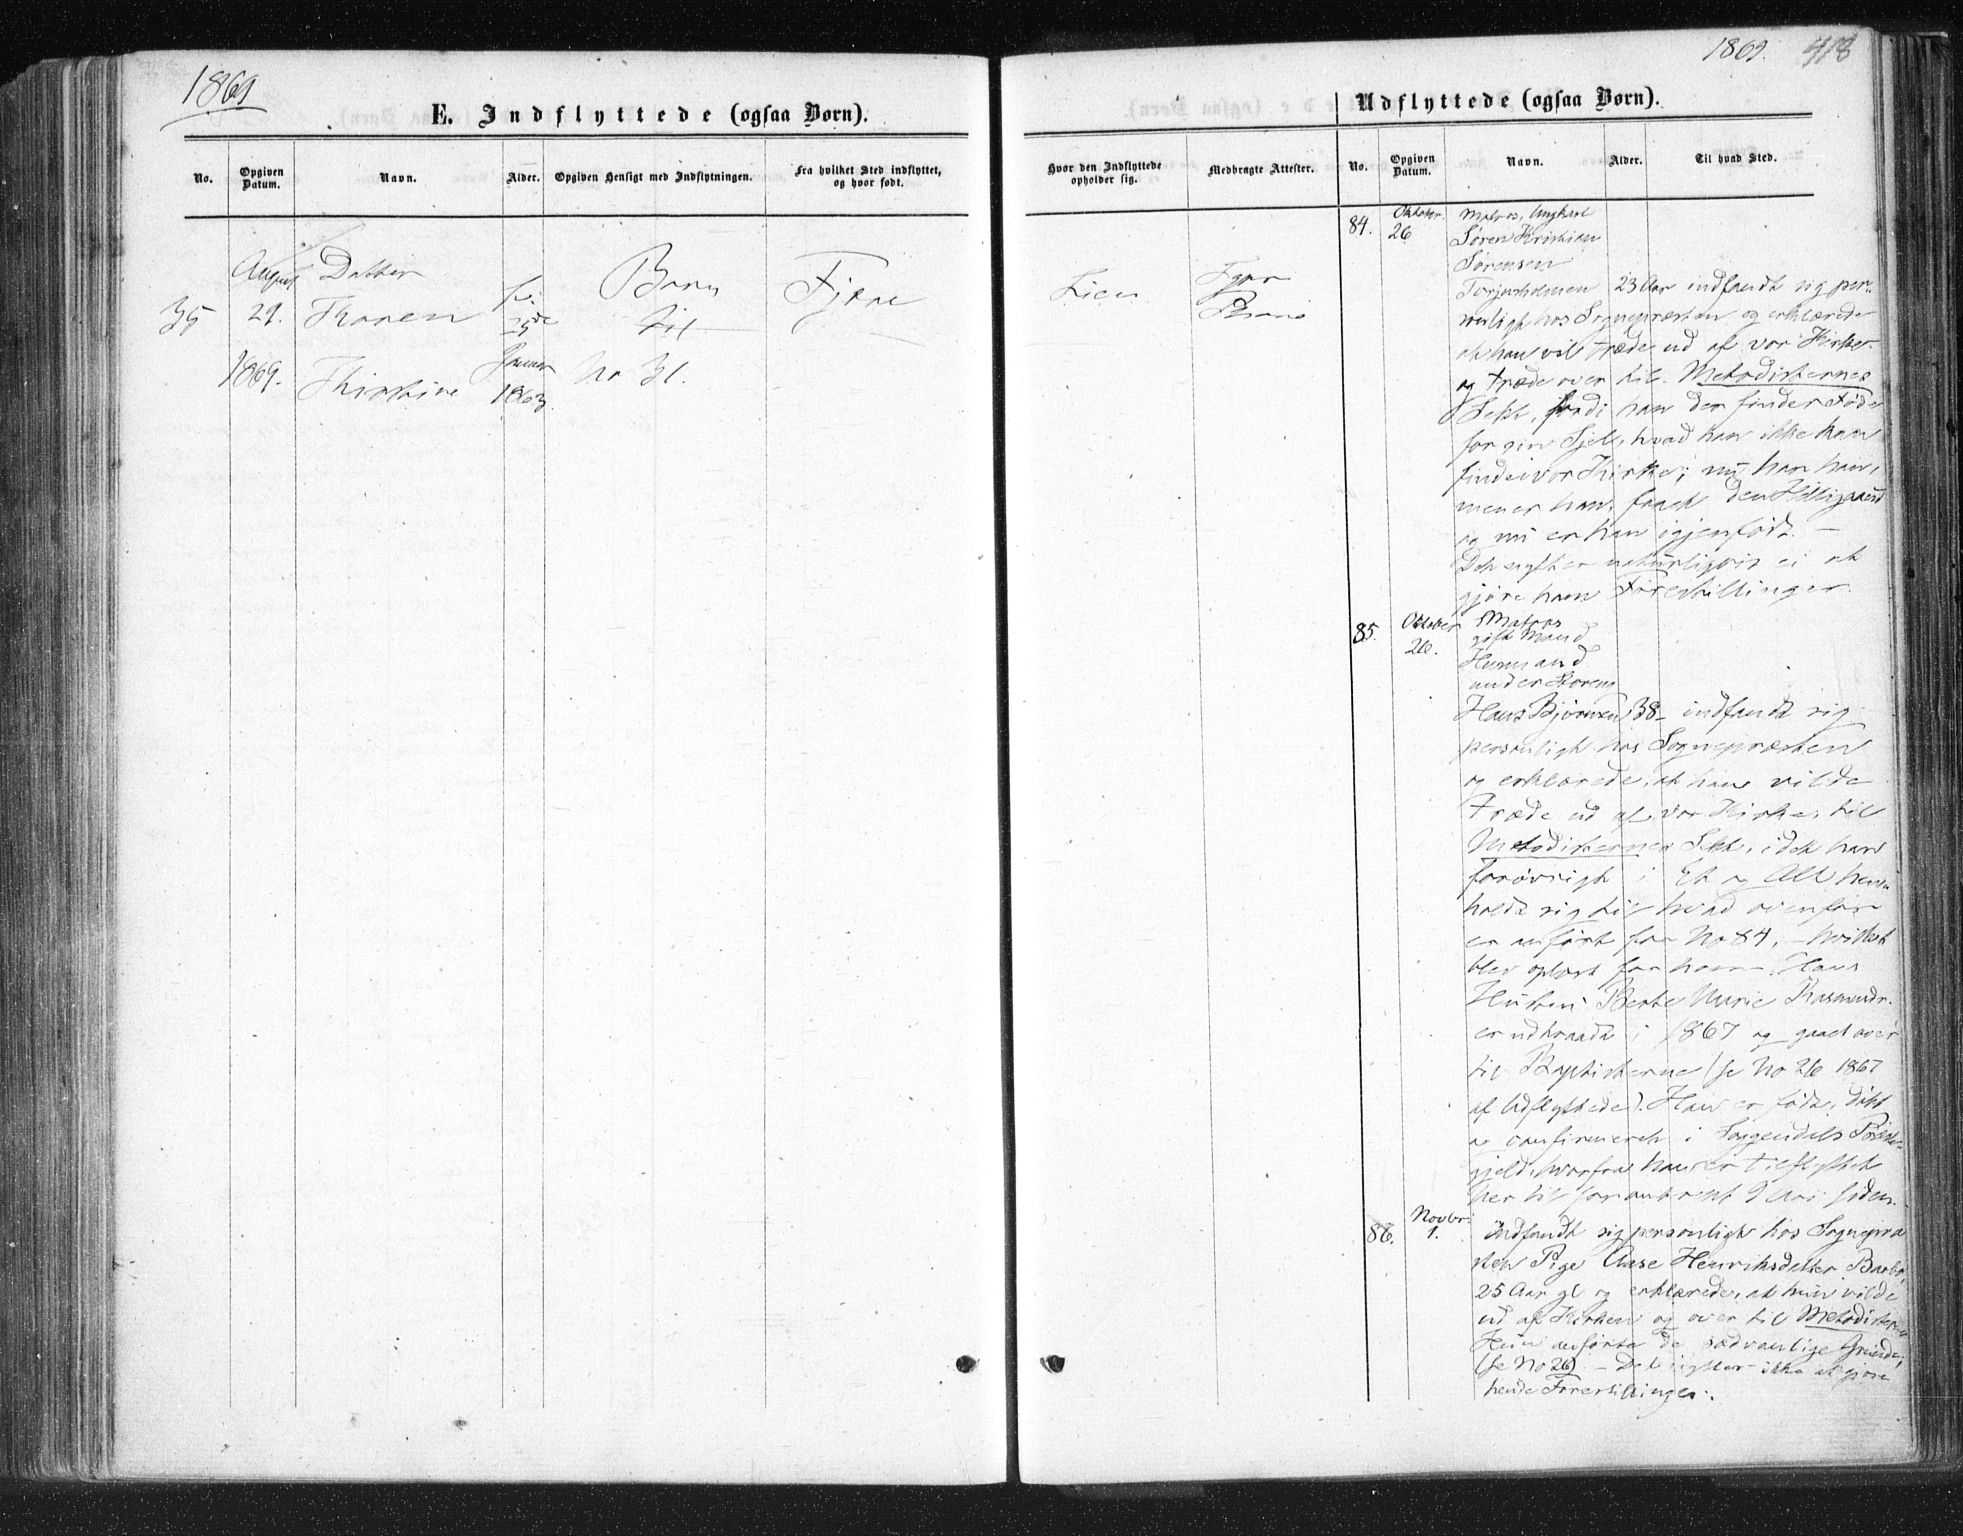 1869
E. Indflyttede (ogsaa Børn).
No.
Opgiven Datum.
Navn.
Alder.
Opgiven Hensigt med Indflytningen.
Fra hvilket Sted indflyttet, og hvor født.
35
August
29.
1869.
Datter
Karen
Kirstine
Januar
1863
Barn
til
No 31.
Fjære
1869. 413
Udflyttede (ogsaa Børn).
Hvor den Indflyttede opholder sig.
Medbragte Attester.
No.
Opgiven Datum.
Navn.
Alder.
Til hvad Sted.
Lien
84. Oktober 26
Matros, Ungkarl
Søren Kristian
Sørensen
Torjusholmen 23 Aar indfandt sig per-
sonligt hos Sognepræsten og erklærede
at han vil træde ud af vor Kirke
og træde over til Metodisternes
Sekt, fordi han der finder Føde
for sin Sjel, hvad han ikke kan
finde i vor Kirke; nu har han,
mener han, faaet den Helligaand
og nu er han igjenfødt. —
Det nytter naturligvis ei at
gjøre ham Forestillinger.
85. Oktober 26.
Matros
gift Mand
Husmand
under
Hans Bjørnsen 38 indfandt sig
personligt hos Sognepræsten
og erklærede, at han vilde
træde ud af vor Kirke, til
Metodisternes Sekt, idet han
forøvrigt i Et og Alt hen-
holdt sig til hvad ovenfor
er anført for No 84, — hvilket
blev oplæst for ham. Hans
Hustru Berte Marie Rasmusdr.
er udtraadt i 1867 og gaaet over
til Baptisterne (se No 26 1867
af Udflyttede). Han er født, døbt
og confirmeret i Soggendals Præste-
gjeld, hvorfra han er tilflyttet
her til for omtrent 9 Aar siden.
86. Novbr. 1.
Indfandt sig personligt hos Sognepræ
sten Pige Aase Henriksdatter Barbo,
25 Aar gl og erklærede, at hun vilde
ud af Kirken og over til Metodisterne
Hun anførte de sædvanlige Grunde,
(se No 26). — Det nytter ikke at gjøre
hende Forestillinger.